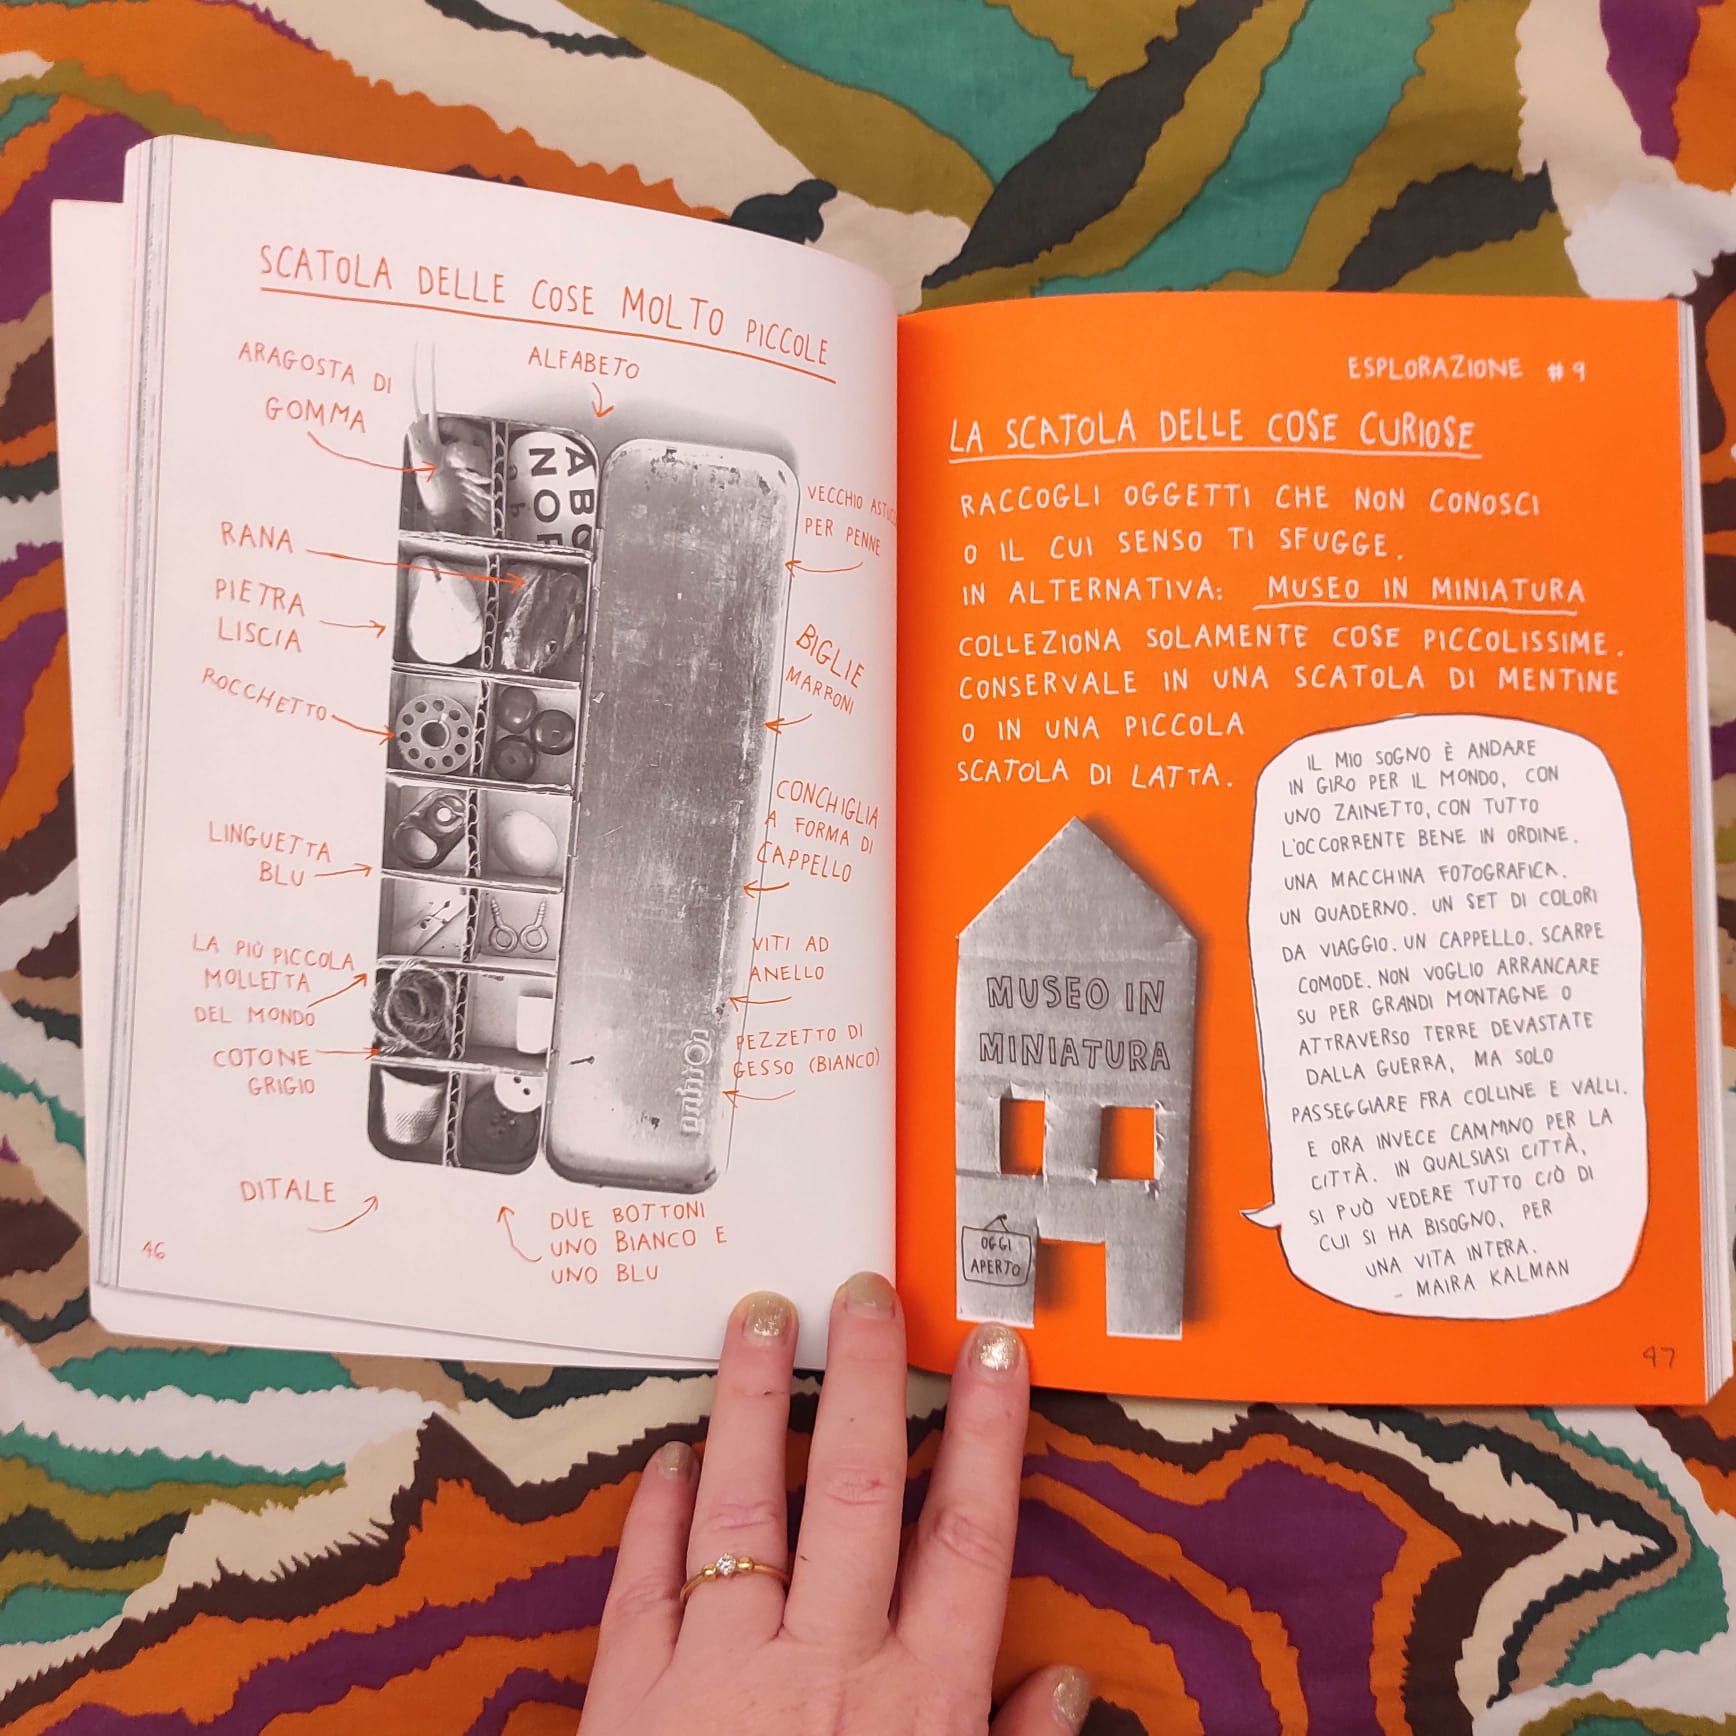 SCATOLA DELLE COSE MOLTO PICCOLE
ARAGOSTA DI
GOMMA
ALFABETO
RANA
PIETRA
LISCIA
ROCCHETTO
LINGUETTA
BLU
LA PIÙ PICCOLA
MOLLETTA
DEL MONDO
COTONE
GRIGIO
DITALE
VECCHIO
PER PENNE
BIGLIE
MARRONI
CONCHIGLIA
A FORMA DI
CAPPELLO
VITI AD
ANELLO
PEZZETTO DI
GESSO (BIANCO)
DUE BOTTONI
UNO BIANCO E
UNO BLU
46
ESPLORAZIONE #9
LA SCATOLA DELLE COSE CURIOSE
RACCOGLI OGGETTI CHE NON CONOSCI
O IL CUI SENSO TI SFUGGE.
IN ALTERNATIVA: MUSEO IN MINIATURA
COLLEZIONA SOLAMENTE COSE PICCOLISSIME.
CONSERVALE IN UNA SCATOLA DI MENTINE
O IN UNA PICCOLA
SCATOLA DI LATTA.
MUSEO IN
MINIATURA
OGGI
APERTO
IL MIO SOGNO È ANDARE
IN GIRO PER IL MONDO, CON
UNO ZAINETTO, CON TUTTO
L'OCCORRENTE BENE IN ORDINE.
UNA MACCHINA FOTOGRAFICA.
UN QUADERNO. UN SET DI COLORI
DA VIAGGIO. UN CAPPELLO. SCARPE
COMODE. NON VOGLIO ARRANCARE
SU PER GRANDI MONTAGNE O
ATTRAVERSO TERRE DEVASTATE
DALLA GUERRA, MA SOLO
PASSEGGIARE FRA COLLINE E VALLI.
E ORA INVECE CAMMINO PER LA
CITTÀ. IN QUALSIASI CITTÀ,
SI PUÒ VEDERE TUTTO CIÒ DI
CUI SI HA BISOGNO, PER
UNA VITA INTERA.
- MAIRA KALMAN
47